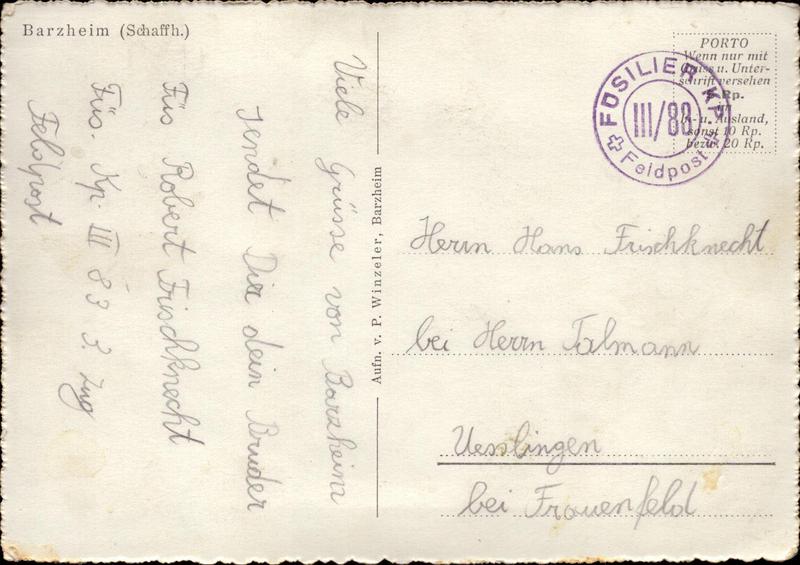 Barzheim (Schaffh.)
Viele Grüsse von Barzheim
sendet Dir dein Bruder
Füs Robert Frischknecht
Füs. Kp. III 83 3. Zug
Feldpost
Aufn. v. P. Winzeler, Barzheim
PORTO
Wenn nur mit
Gruss u. Unter-
schrift versehen
Rp.
In- u. Ausland,
sonst 10 Rp.
bezw. 20 Rp.
FÜSILIER KP.
III/83
Feldpost
Herrn Hans Frischknecht
bei Herrn Talmann
Uesslingen
bei Frauenfeld